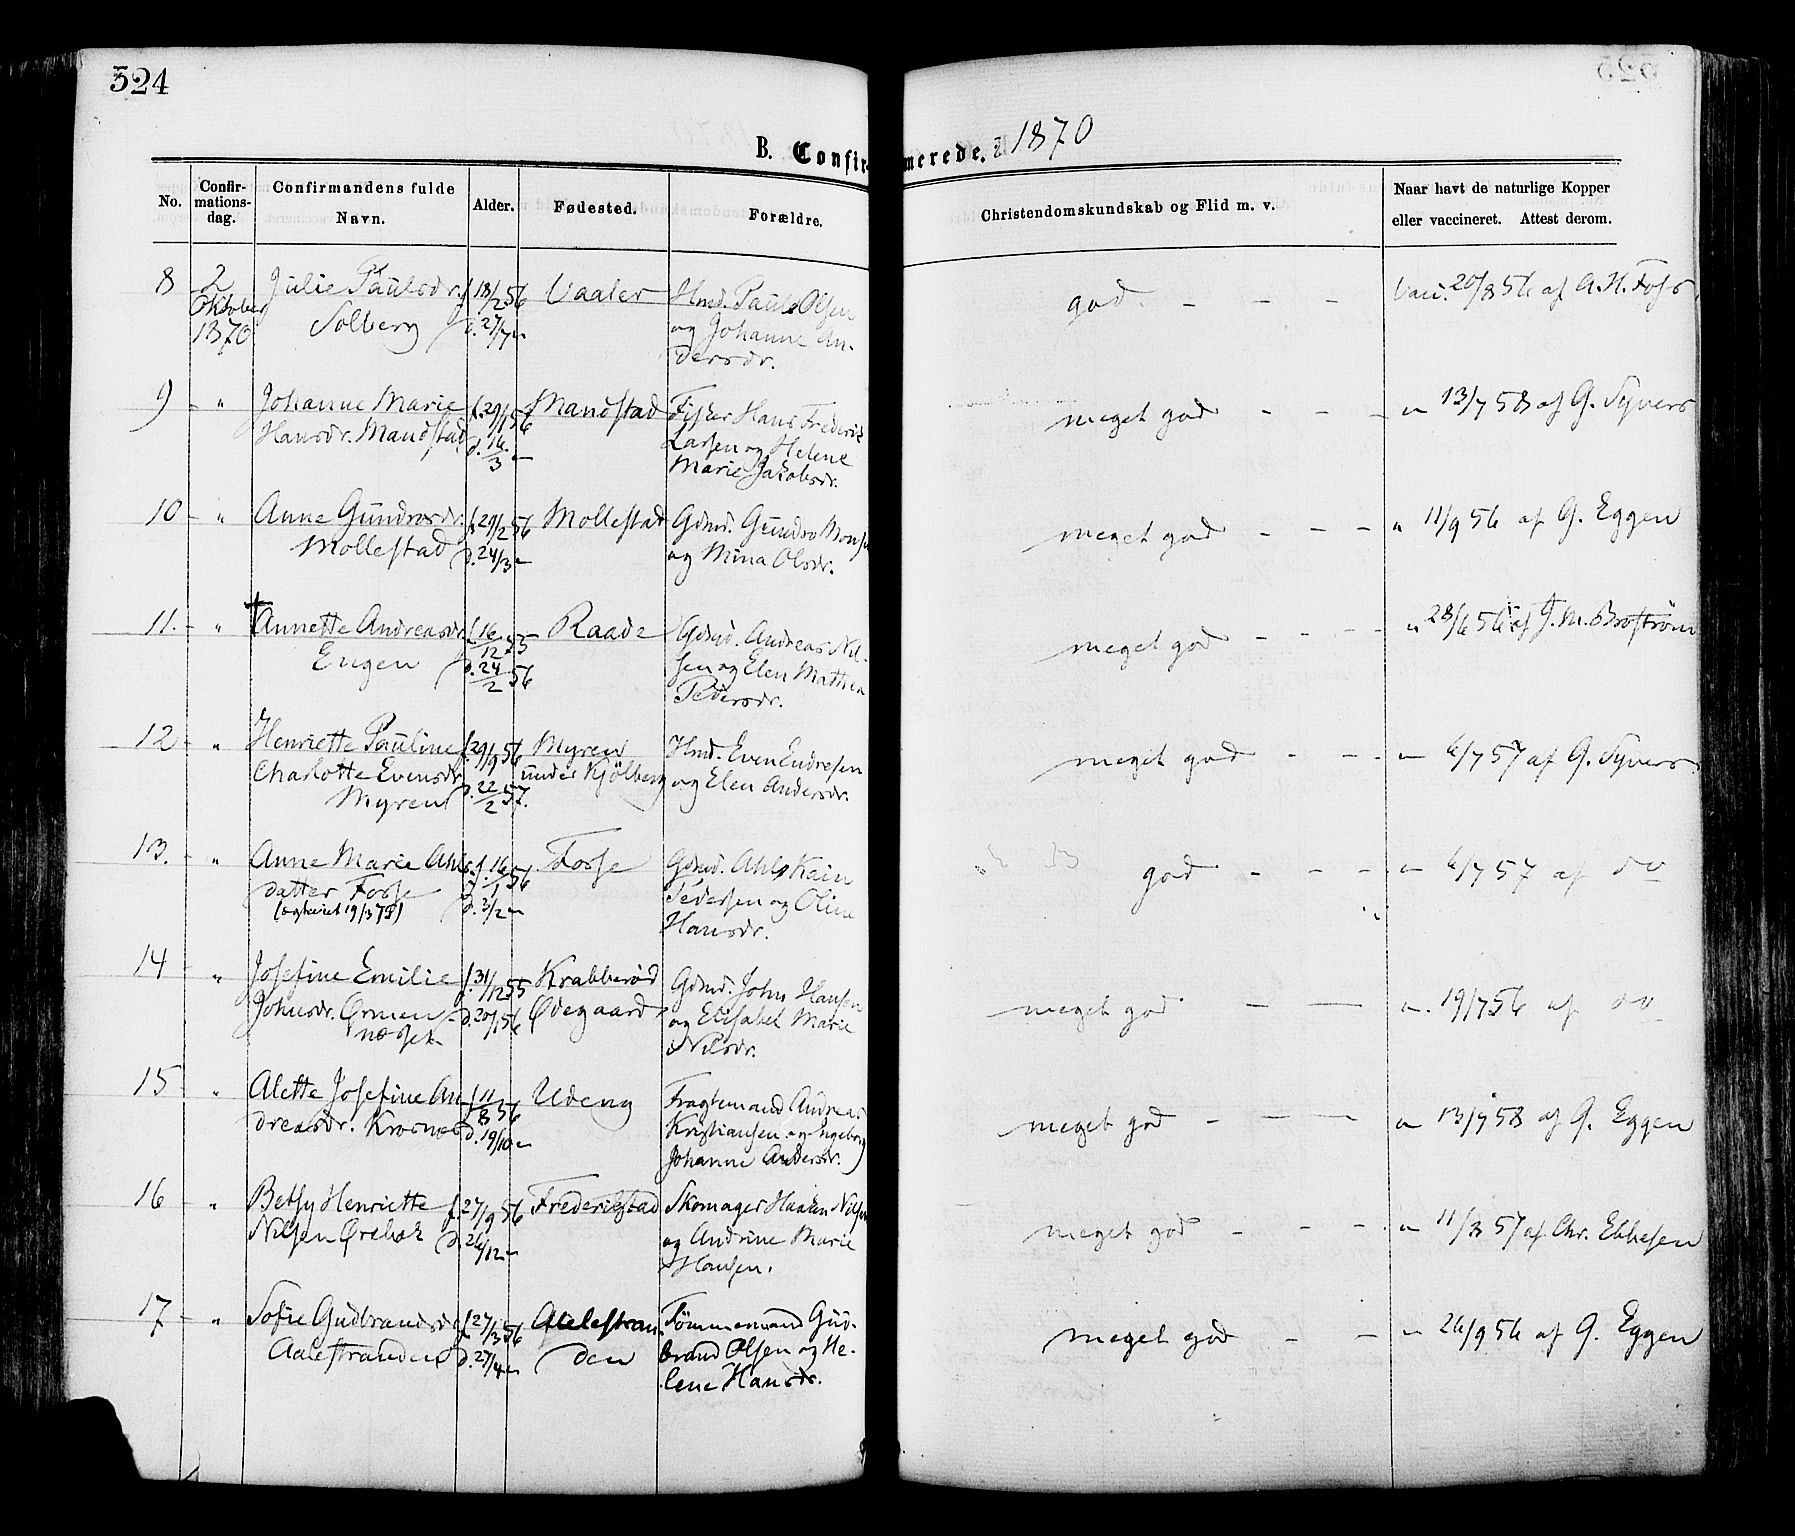 324
B. Confirmerede. i 1870
No.
Confir-
mations-
dag.
Confirmandens fulde
Navn.
Alder.
Fødested.
Forældre.
Christendomskundskab og Flid m. v.
Naar havt de naturlige Kopper
eller vaccineret. Attest derom.
8
2
Oktober
1870
Julie Paulsdr.
Solberg
f. 18/2 56
d. 27/7 "
Vaaler
Hmd. Paul Olsen
og Johanne An-
dersdr.
god - - -
Vacc. 20/8 56 af A. H. Foss
9
"
Johanne Marie
Hansdr. Mandstad
f. 29/1 56
d. 16/3 "
Mandstad
Fisker Hans Frederik
Larsen og Helene
Marie Jakobsdr.
meget god - - -
" 13/7 58 af G. Syvers
10
"
Anne Gundrosdr.
Mollestad
f. 29/2 56
d. 24/3 "
Mollestad
Gdmd. Gundro Mons
og Mina Olsdr.
meget god - - -
" 11/9 56 af G. Eggen
11.
"
† Annette Andreasdr.
Engen
f. 16/12 55
d. 24/2 56
Raade
Gdmd. Andreas Nil-
sen og Elen Mathea
Pedersdr.
meget god - - -
" 28/6 56 af J. M. Brostrøm
12
"
Henriette Pauline
Charlotte Evensdr.
Myren
f. 29/9 56
d. 22/2 57.
Myren
under Kjölberg
Hmd. Even Endresen
og Elen Andersdr.
meget god - - -
" 6/7 57 af G. Syvers
13.
"
Anne Marie Ahls-
datter Fosse
f. 16/1 56
d. 3/2 "
Fosse
Gdmd. Ahls Kain
Pedersen og Oline
Hansdr.
god - - -
" 6/7 57 af do
14
"
Josefine Emilie
Johnsdr. Ørmen-
næset
f. 31/12 55
d. 20/1 56
Krabberød
Ødegaard
Gdmd. John Hansen
og Elisabet Marie
Nilsdr.
meget god - —
" 19/7 56 af do
15
"
Alette Josefine An-
dreasdr. Krosnes
f. 11/8 56
d. 19/10 "
Udeng
Fragtemand Andreas
Kristiansen og Ingeborg
Johanne Andersdr.
meget god - — —
" 13/7 58 af G. Eggen
16
"
Betsy Henriette
Nilsen Ørebæk
f. 27/9 56
d. 26/12 "
Frederikstad
Skomager Haaken Nilsen
og Andrine Marie
Hansen.
meget god - - -
" 11/8 57 af Chr. Ebbesen
17
"
Sofie Gudbrandsdr.
Aalestranden
f. 27/3 56
d. 27/4 "
Aalestran-
den
Tömmermand Gud-
brand Olsen og He-
lene Hansdr.
meget god - -
" 26/9 56 af G. Eggen